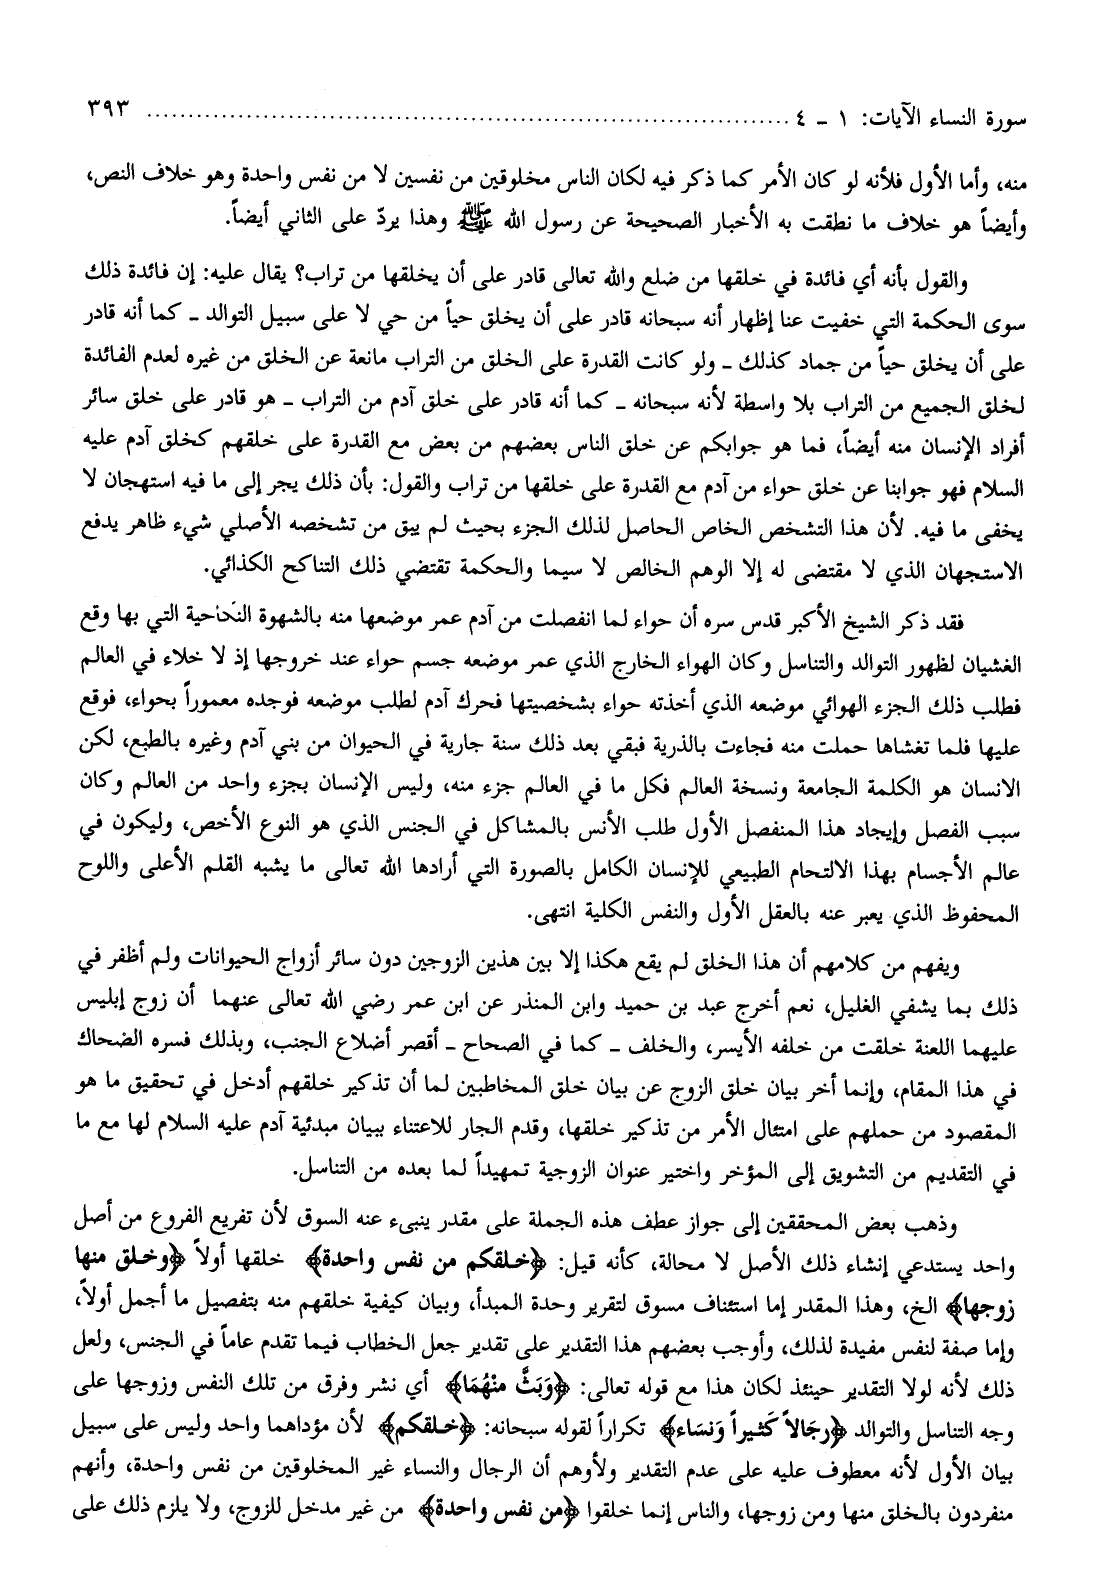 سورة النساء الآيات: ١ ـ ٤ ........................................................................ ٣٩٣
منه، وأما الأول فلأنه لو كان الأمر كما ذكر فيه لكان الناس مخلوقين من نفسين لا من نفس واحدة وهو خلاف النص،
وأيضاً هو خلاف ما نطقت به الأخبار الصحيحة عن رسول الله ﷺ وهذا يردّ على الثاني أيضاً.
والقول بأنه أي فائدة في خلقها من ضلع والله تعالى قادر على أن يخلقها من تراب؟ يقال عليه: إن فائدة ذلك
سوى الحكمة التي خفيت عنا إظهار أنه سبحانه قادر على أن يخلق حياً من حي لا على سبيل التوالد ـ كما أنه قادر
على أن يخلق حياً من جماد كذلك ـ ولو كانت القدرة على الخلق من التراب مانعة عن الخلق من غيره لعدم الفائدة
لخلق الجميع من التراب بلا واسطة لأنه سبحانه ـ كما أنه قادر على خلق آدم من التراب ـ هو قادر على خلق سائر
أفراد الإنسان منه أيضاً، فما هو جوابكم عن خلق الناس بعضهم من بعض مع القدرة على خلقهم كخلق آدم عليه
السلام فهو جوابنا عن خلق حواء من آدم مع القدرة على خلقها من تراب والقول: بأن ذلك يجر إلى ما فيه استهجان لا
يخفى ما فيه. لأن هذا التشخص الخاص الحاصل لذلك الجزء بحيث لم يبق من تشخصه الأصلي شيء ظاهر يدفع
الاستجهان الذي لا مقتضى له إلا الوهم الخالص لا سيما والحكمة تقتضي ذلك التناكح الكذائي.
فقد ذكر الشيخ الأكبر قدس سره أن حواء لما انفصلت من آدم عمر موضعها منه بالشهوة النكاحية التي بها وقع
الغشيان لظهور التوالد والتناسل وكان الهواء الخارج الذي عمر موضعه جسم حواء عند خروجها إذ لا خلاء في العالم
فطلب ذلك الجزء الهوائي موضعه الذي أخذته حواء بشخصيتها فحرك آدم لطلب موضعه فوجده معموراً بحواء، فوقع
عليها فلما تغشاها حملت منه فجاءت بالذرية فبقي بعد ذلك سنة جارية في الحيوان من بني آدم وغيره بالطبع، لكن
الانسان هو الكلمة الجامعة ونسخة العالم فكل ما في العالم جزء منه، وليس الإنسان بجزء واحد من العالم وكان
سبب الفصل وإيجاد هذا المنفصل الأول طلب الأنس بالمشاكل في الجنس الذي هو النوع الأخص، وليكون في
عالم الأجسام بهذا الالتحام الطبيعي للإنسان الكامل بالصورة التي أرادها الله تعالى ما يشبه القلم الأعلى واللوح
المحفوظ الذي يعبر عنه بالعقل الأول والنفس الكلية انتهى.
ويفهم من كلامهم أن هذا الخلق لم يقع هكذا إلا بين هذين الزوجين دون سائر أزواج الحيوانات ولم أظفر في
ذلك بما يشفي الغليل، نعم أخرج عبد بن حميد وابن المنذر عن ابن عمر رضي الله تعالى عنهما أن زوج إبليس
عليهما اللعنة خلقت من خلفه الأيسر، والخلف ـ كما في الصحاح ـ أقصر أضلاع الجنب، وبذلك فسره الضحاك
في هذا المقام، وإنما أخر بيان خلق الزوج عن بيان خلق المخاطبين لما أن تذكير خلقهم أدخل في تحقيق ما هو
المقصود من حملهم على امتثال الأمر من تذكير خلقها، وقدم الجار للاعتناء ببيان مبدئية آدم عليه السلام لها مع ما
في التقديم من التشويق إلى المؤخر واختير عنوان الزوجية تمهيداً لما بعده من التناسل.
وذهب بعض المحققين إلى جواز عطف هذه الجملة على مقدر ينبىء عنه السوق لأن تفريع الفروع من أصل
واحد يستدعي إنشاء ذلك الأصل لا محالة، كأنه قيل: ﴿خلقكم من نفس واحدة﴾ خلقها أولاً ﴿وخلق منها
زوجها﴾ الخ، وهذا المقدر إما استئناف مسوق لتقرير وحدة المبدأ، وبيان كيفية خلقهم منه بتفصيل ما أجمل أولاً،
وإما صفة لنفس مفيدة لذلك، وأوجب بعضهم هذا التقدير على تقدير جعل الخطاب فيما تقدم عاماً في الجنس، ولعل
ذلك لأنه لولا التقدير حينئذ لكان هذا مع قوله تعالى: ﴿وَبَثَّ منْهُمَا﴾ أي نشر وفرق من تلك النفس وزوجها على
وجه التناسل والتوالد ﴿رجَالاً كَثيراً وَنسَاء﴾ تكراراً لقوله سبحانه: ﴿خلقكم﴾ لأن مؤداهما واحد وليس على سبيل
بيان الأول لأنه معطوف عليه على عدم التقدير ولأوهم أن الرجال والنساء غير المخلوقين من نفس واحدة، وأنهم
منفردون بالخلق منها ومن زوجها، والناس إنما خلقوا ﴿من نفس واحدة﴾ من غير مدخل للزوج، ولا يلزم ذلك على